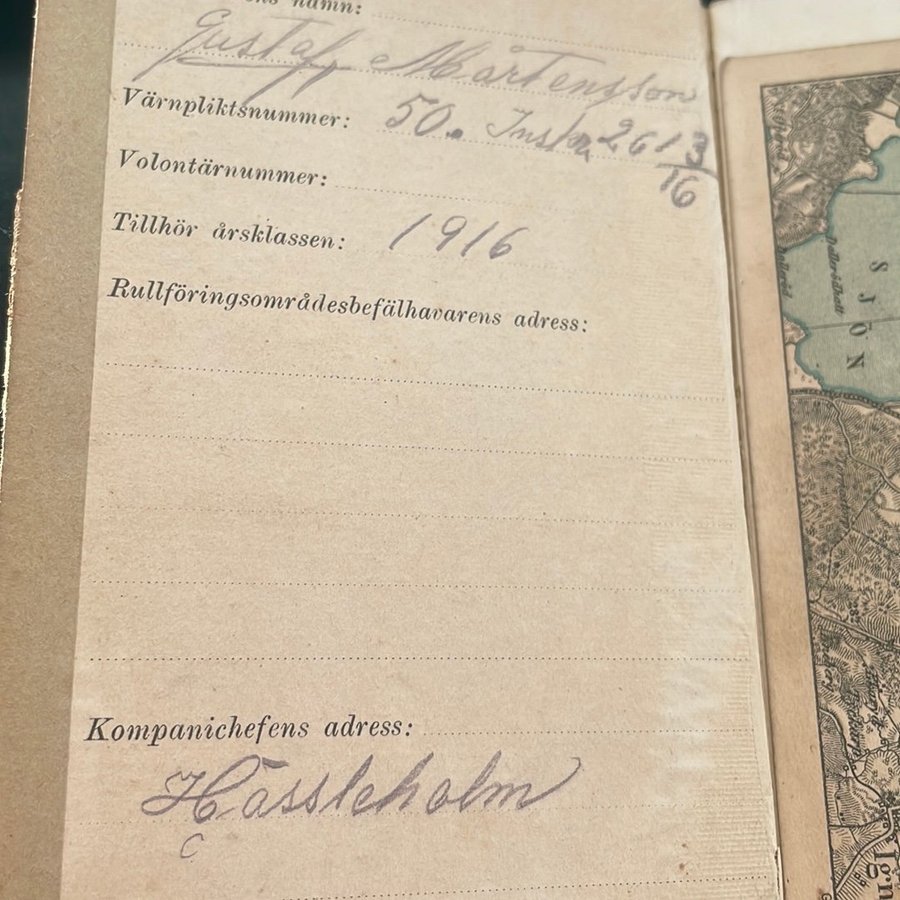 namn:
Gustaf Mårtensson
Värnpliktsnummer: 50. 2613/16
Volontärnummer:
Tillhör årsklassen: 1916
Rullföringsområdesbefälhavarens adress:
Kompanichefens adress:
Hässleholm
SJÖN